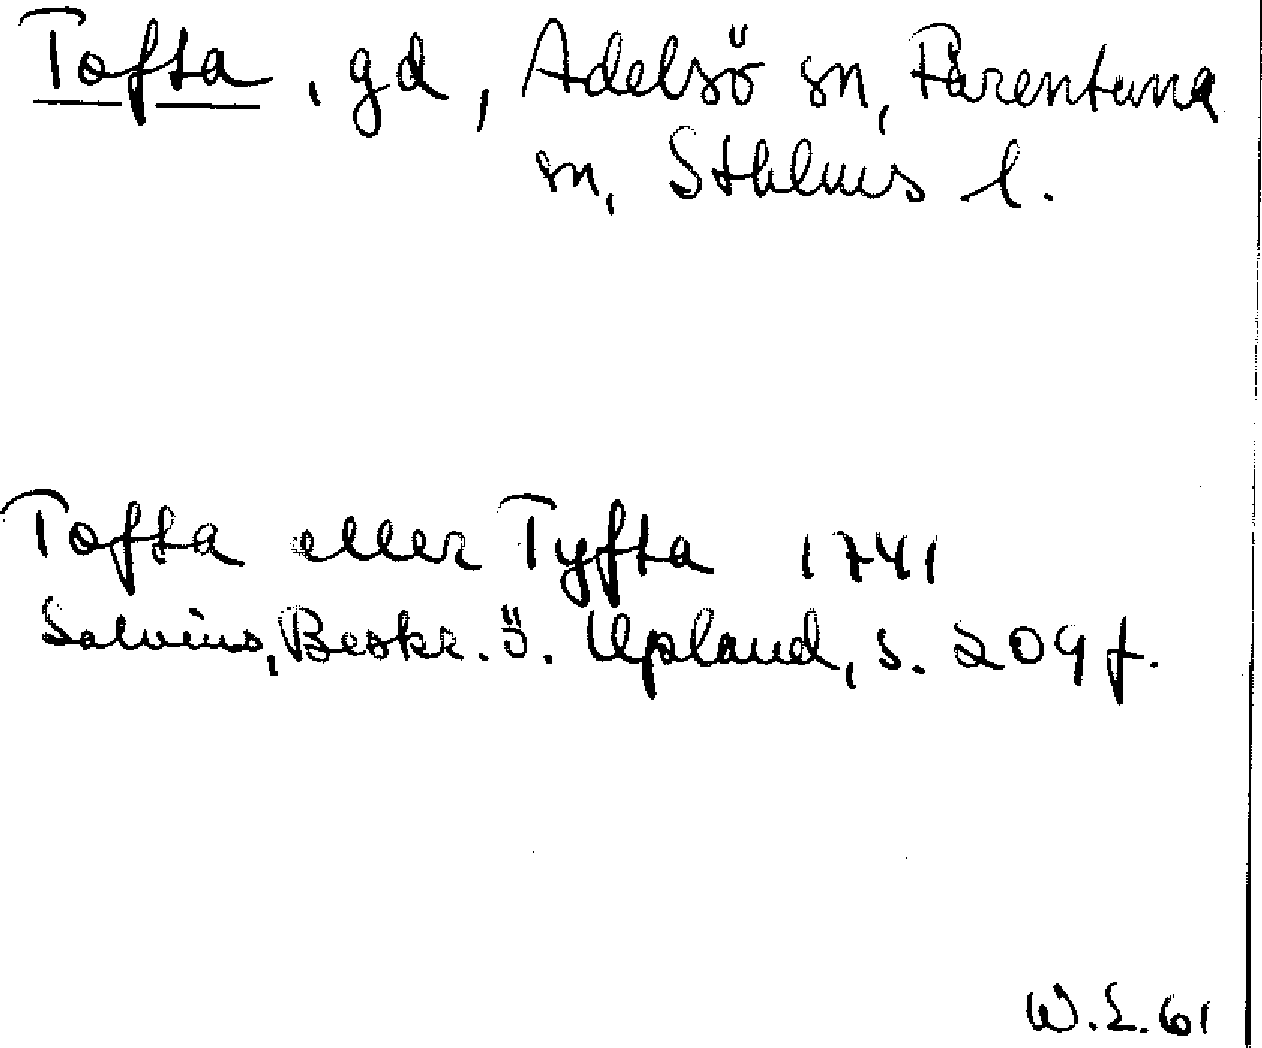 Tofta, gd, Adelsö sn, Färentuna
sn, Sthlms l.
Tofta eller Tyfta 1741
Salvius, Beskr. ö. Upland, s. 209 f.
W.L. 61